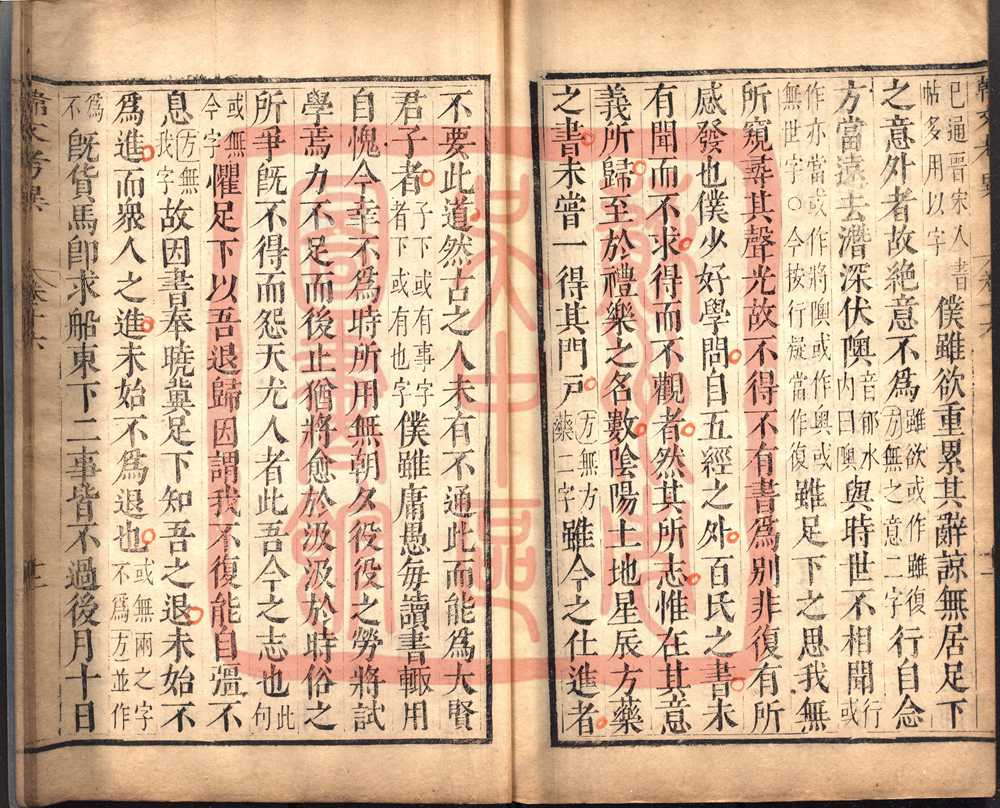 已通晉宋人書帖多用以字僕雖欲重累其辭諒無居足下
之意外者故絕意不為雖欲或作雖復方無之意二字行自念
方當遠去潛深伏隩音郁水內曰隩與時世不相聞或行
作亦當或作將隩或作奧或無世字○今按行疑當作復雖足下之思我無
所窺尋其聲光故不得不有書爲別非復有所
感發也僕少好學問自五經之外百氏之書未
有聞而不求得而不觀者然其所志惟在其意
義所歸至於禮樂之名數陰陽土地星辰方藥
之書未嘗一得其門戸方無方藥二字雖今之仕進者
不要此道然古之人未有不通此而能爲大賢
君子者子下或有事字者下或有也字僕雖庸愚每讀書輙用
自愧今幸不爲時所用無朝夕役役之勞將試
學焉力不足而後止猶將愈於汲汲於時俗之
所爭旣不得而怨天尤人者此吾今之志也此句
或無今字懼足下以吾退歸因謂我不復能自彊不
息方無我字故因書奉曉冀足下知吾之退未始不
爲進而衆人之進未始不爲退也或無兩之字不爲方並作
爲不旣貨馬卽求船東下二事皆不過後月十日